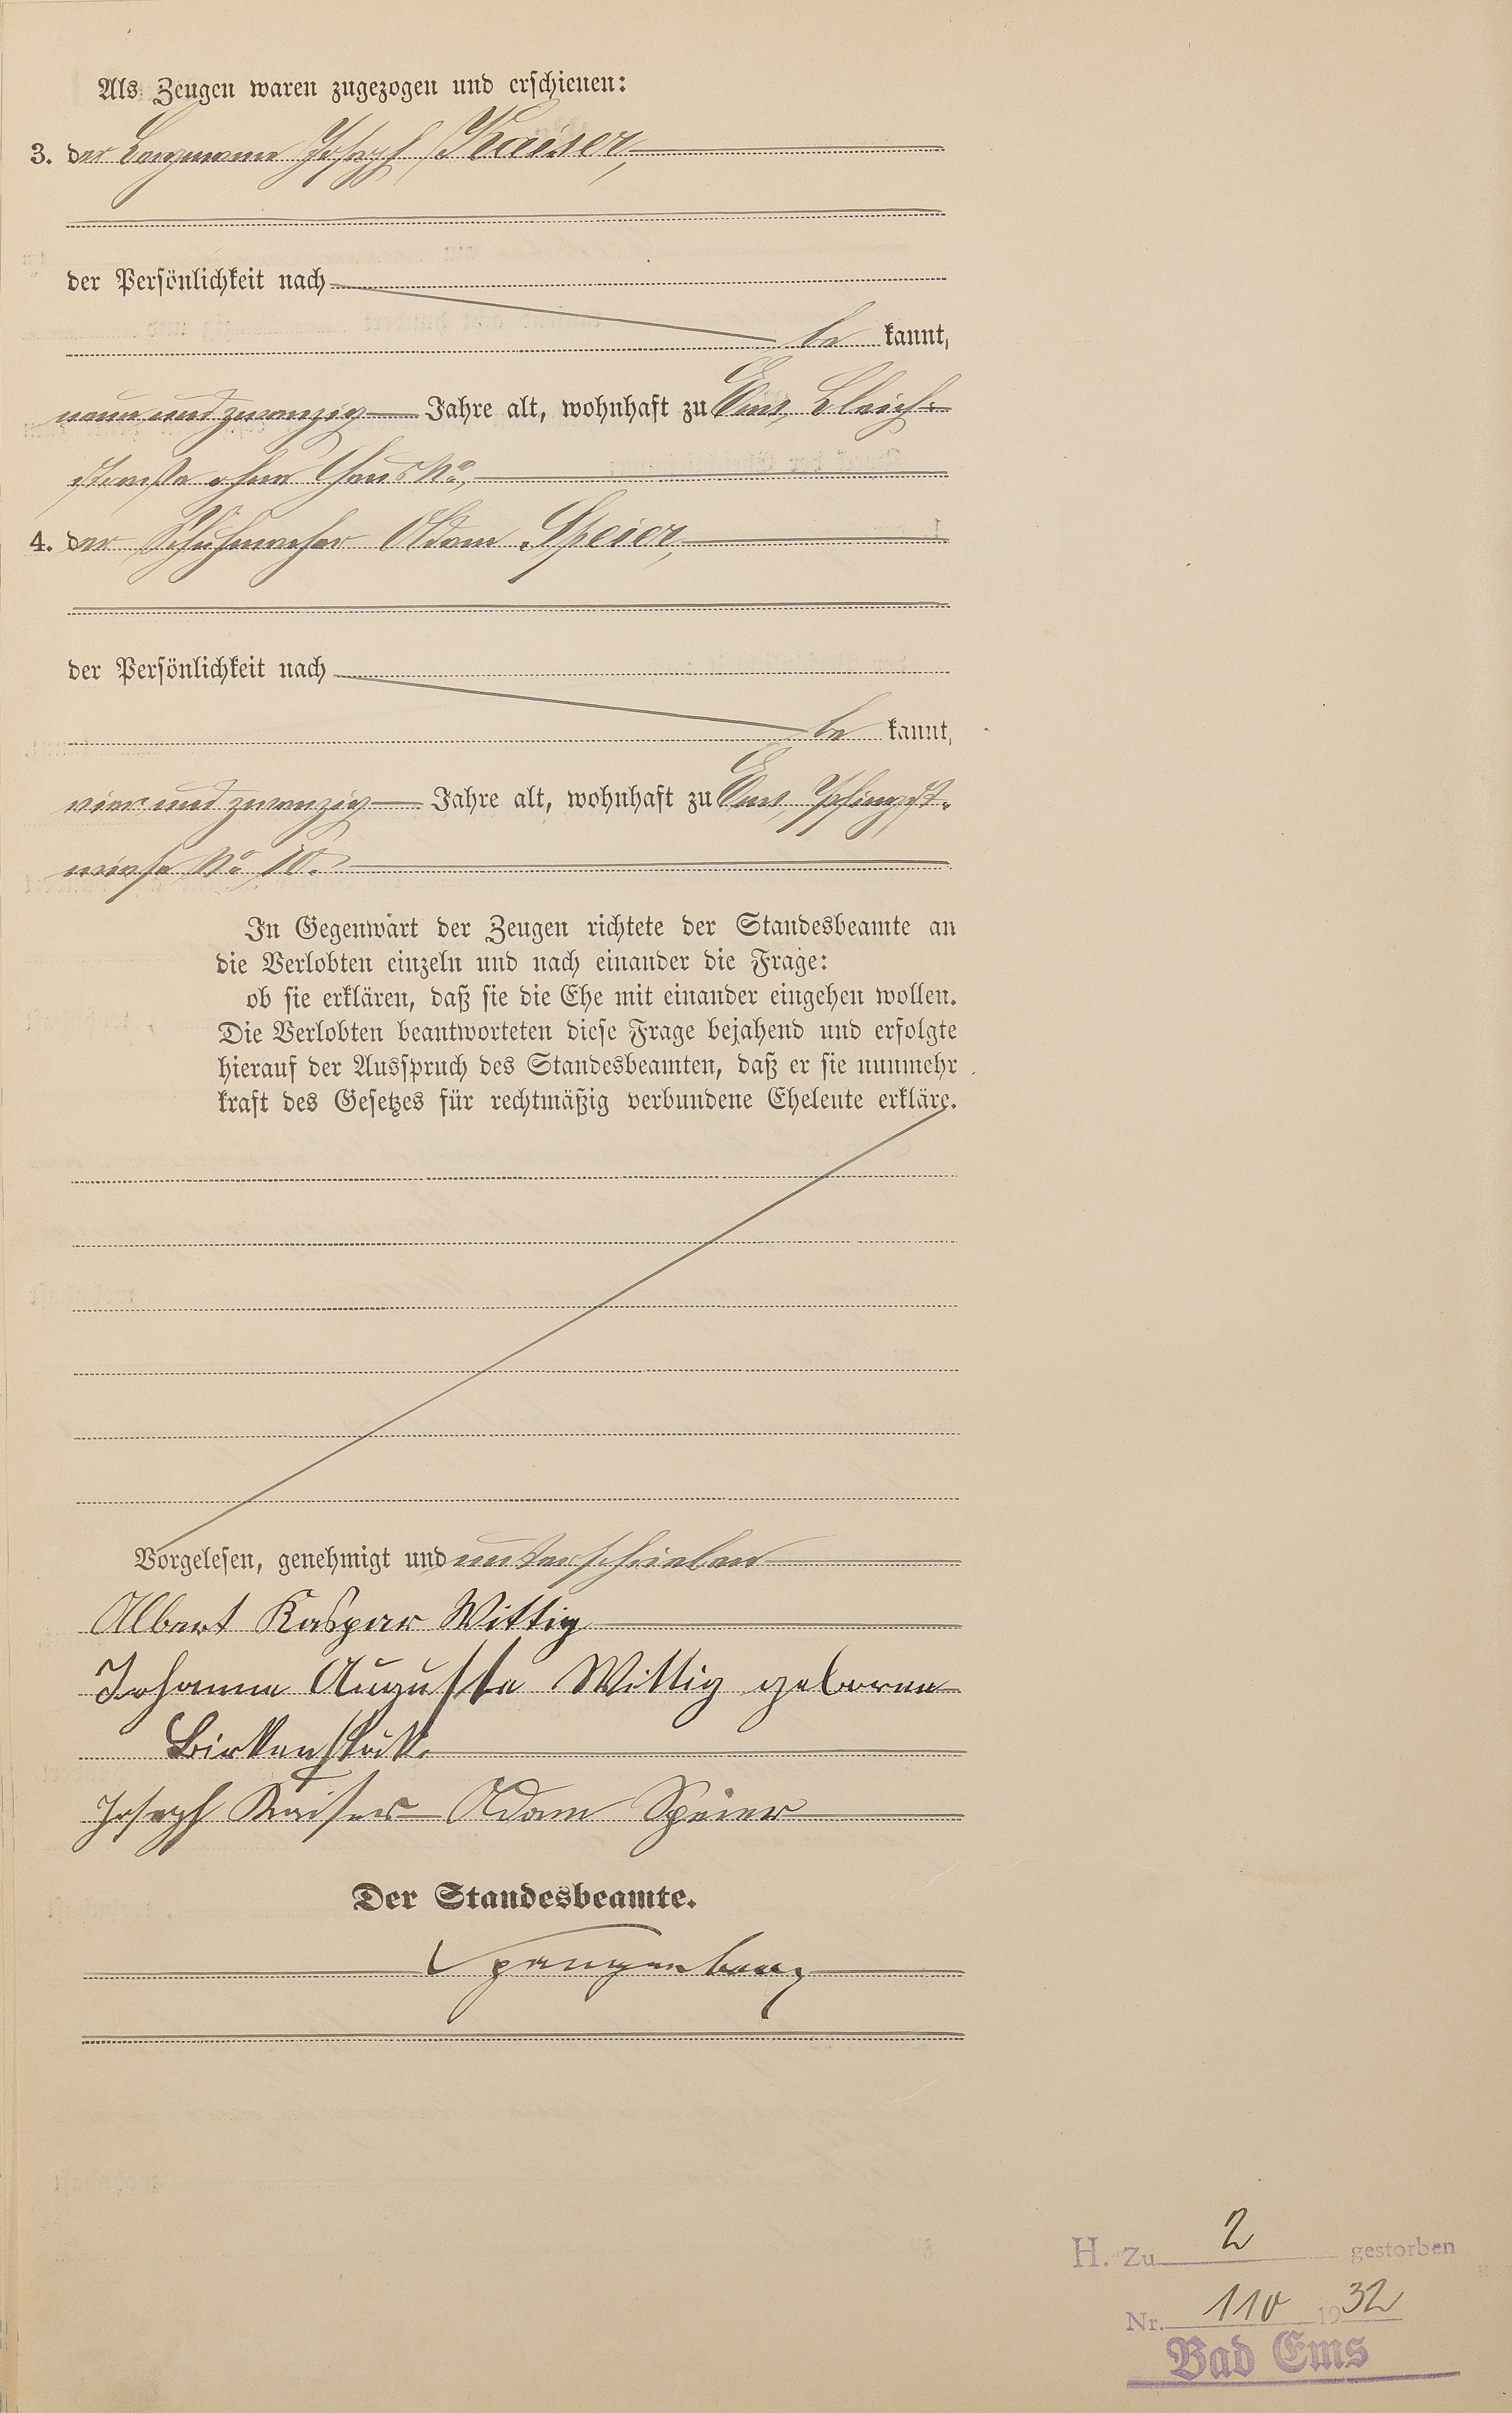 Als Zeugen waren zugezogen und erschienen:
3. der Bergmann Joseph Kaiser,
der Persönlichkeit nach
be kannt,
neun und zwanzig Jahre alt, wohnhaft zu Ems, Bleich-
straße ohne Haus No,
4. der Schuhmacher Adam Speier,
der Persönlichkeit nach
be kannt,
vier und zwanzig Jahre alt, wohnhaft zu Ems, Pfingst-
wiese No 10.
In Gegenwart der Zeugen richtete der Standesbeamte an
die Verlobten einzeln und nach einander die Frage:
ob sie erklären, daß sie die Ehe mit einander eingehen wollen.
Die Verlobten beantworteten diese Frage bejahend und erfolgte
hierauf der Ausspruch des Standesbeamten, daß er sie nunmehr
kraft des Gesetzes für rechtmäßig verbundene Eheleute erkläre.
Vorgelesen, genehmigt und unterschrieben
Albert Kaspar Wittig
Johanne Auguste Wittig geborene
Birkenstock.
Joseph Kaiser Adam Speier
Der Standesbeamte.
Spangenberg
H. Zu 2 gestorben
Nr. 110 1932
Bad Ems